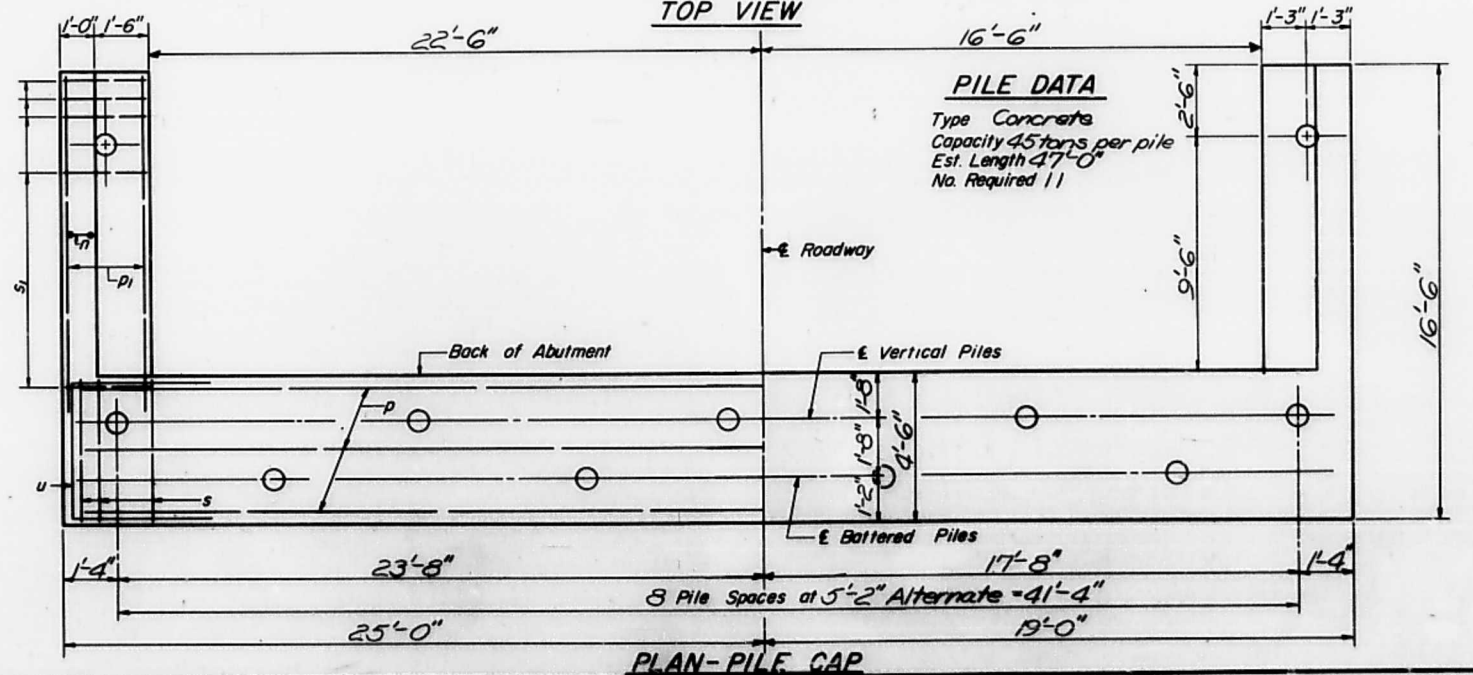 TOP VIEW
1'-0" 1'-6"
22'-6"
16'-6"
1'-3" 1'-3"
PILE DATA
Type Concrete
Capacity 45 tons per pile
Est. Length 47'-0"
No. Required 11
2'-6"
9'-6"
16'-6"
n
p₁
s₁
℄ Roadway
Back of Abutment
℄ Vertical Piles
p
1'-8"
1'-8"
4'-6"
1'-2"
u
s
℄ Battered Piles
1'-4"
23'-8"
17'-8"
1'-4"
8 Pile Spaces at 5'-2" Alternate = 41'-4"
25'-0"
19'-0"
PLAN-PILE CAP